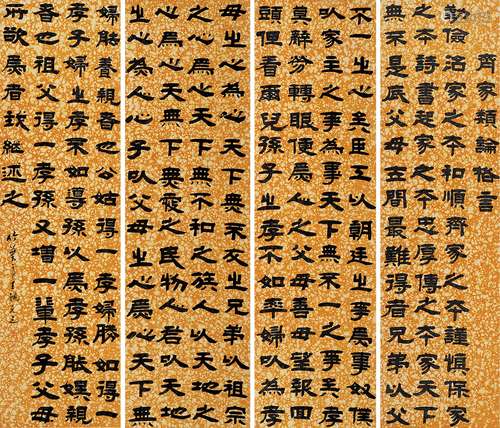 齊家類論格言
勤儉治家之本和順齊家之本謹慎保家
之本詩書起家之本忠厚傳之本家天下
無不是底父母五間最難得者兄弟以父
不一之心矣臣工以朝廷之事爲事奴僕
以家主之事爲事天下無不一之事矣孝
莫辭勞轉眼便爲人父母善毋望報回
頭但看爾兒孫子之孝不如率婦以爲孝
母之心爲心天下無不友之兄弟以祖宗
之心爲心天下無不和之族人以天地之
心爲心天下無不愛之民物人君以天地
之心爲心人子以父母之心爲心天下無
婦能養親者也公姑得一孝婦勝如得一
孝子婦之孝不如導孫以爲孝孫能娛親
者也祖父得一孝孫又增一輩孝子父母
所欲爲者故繼述之